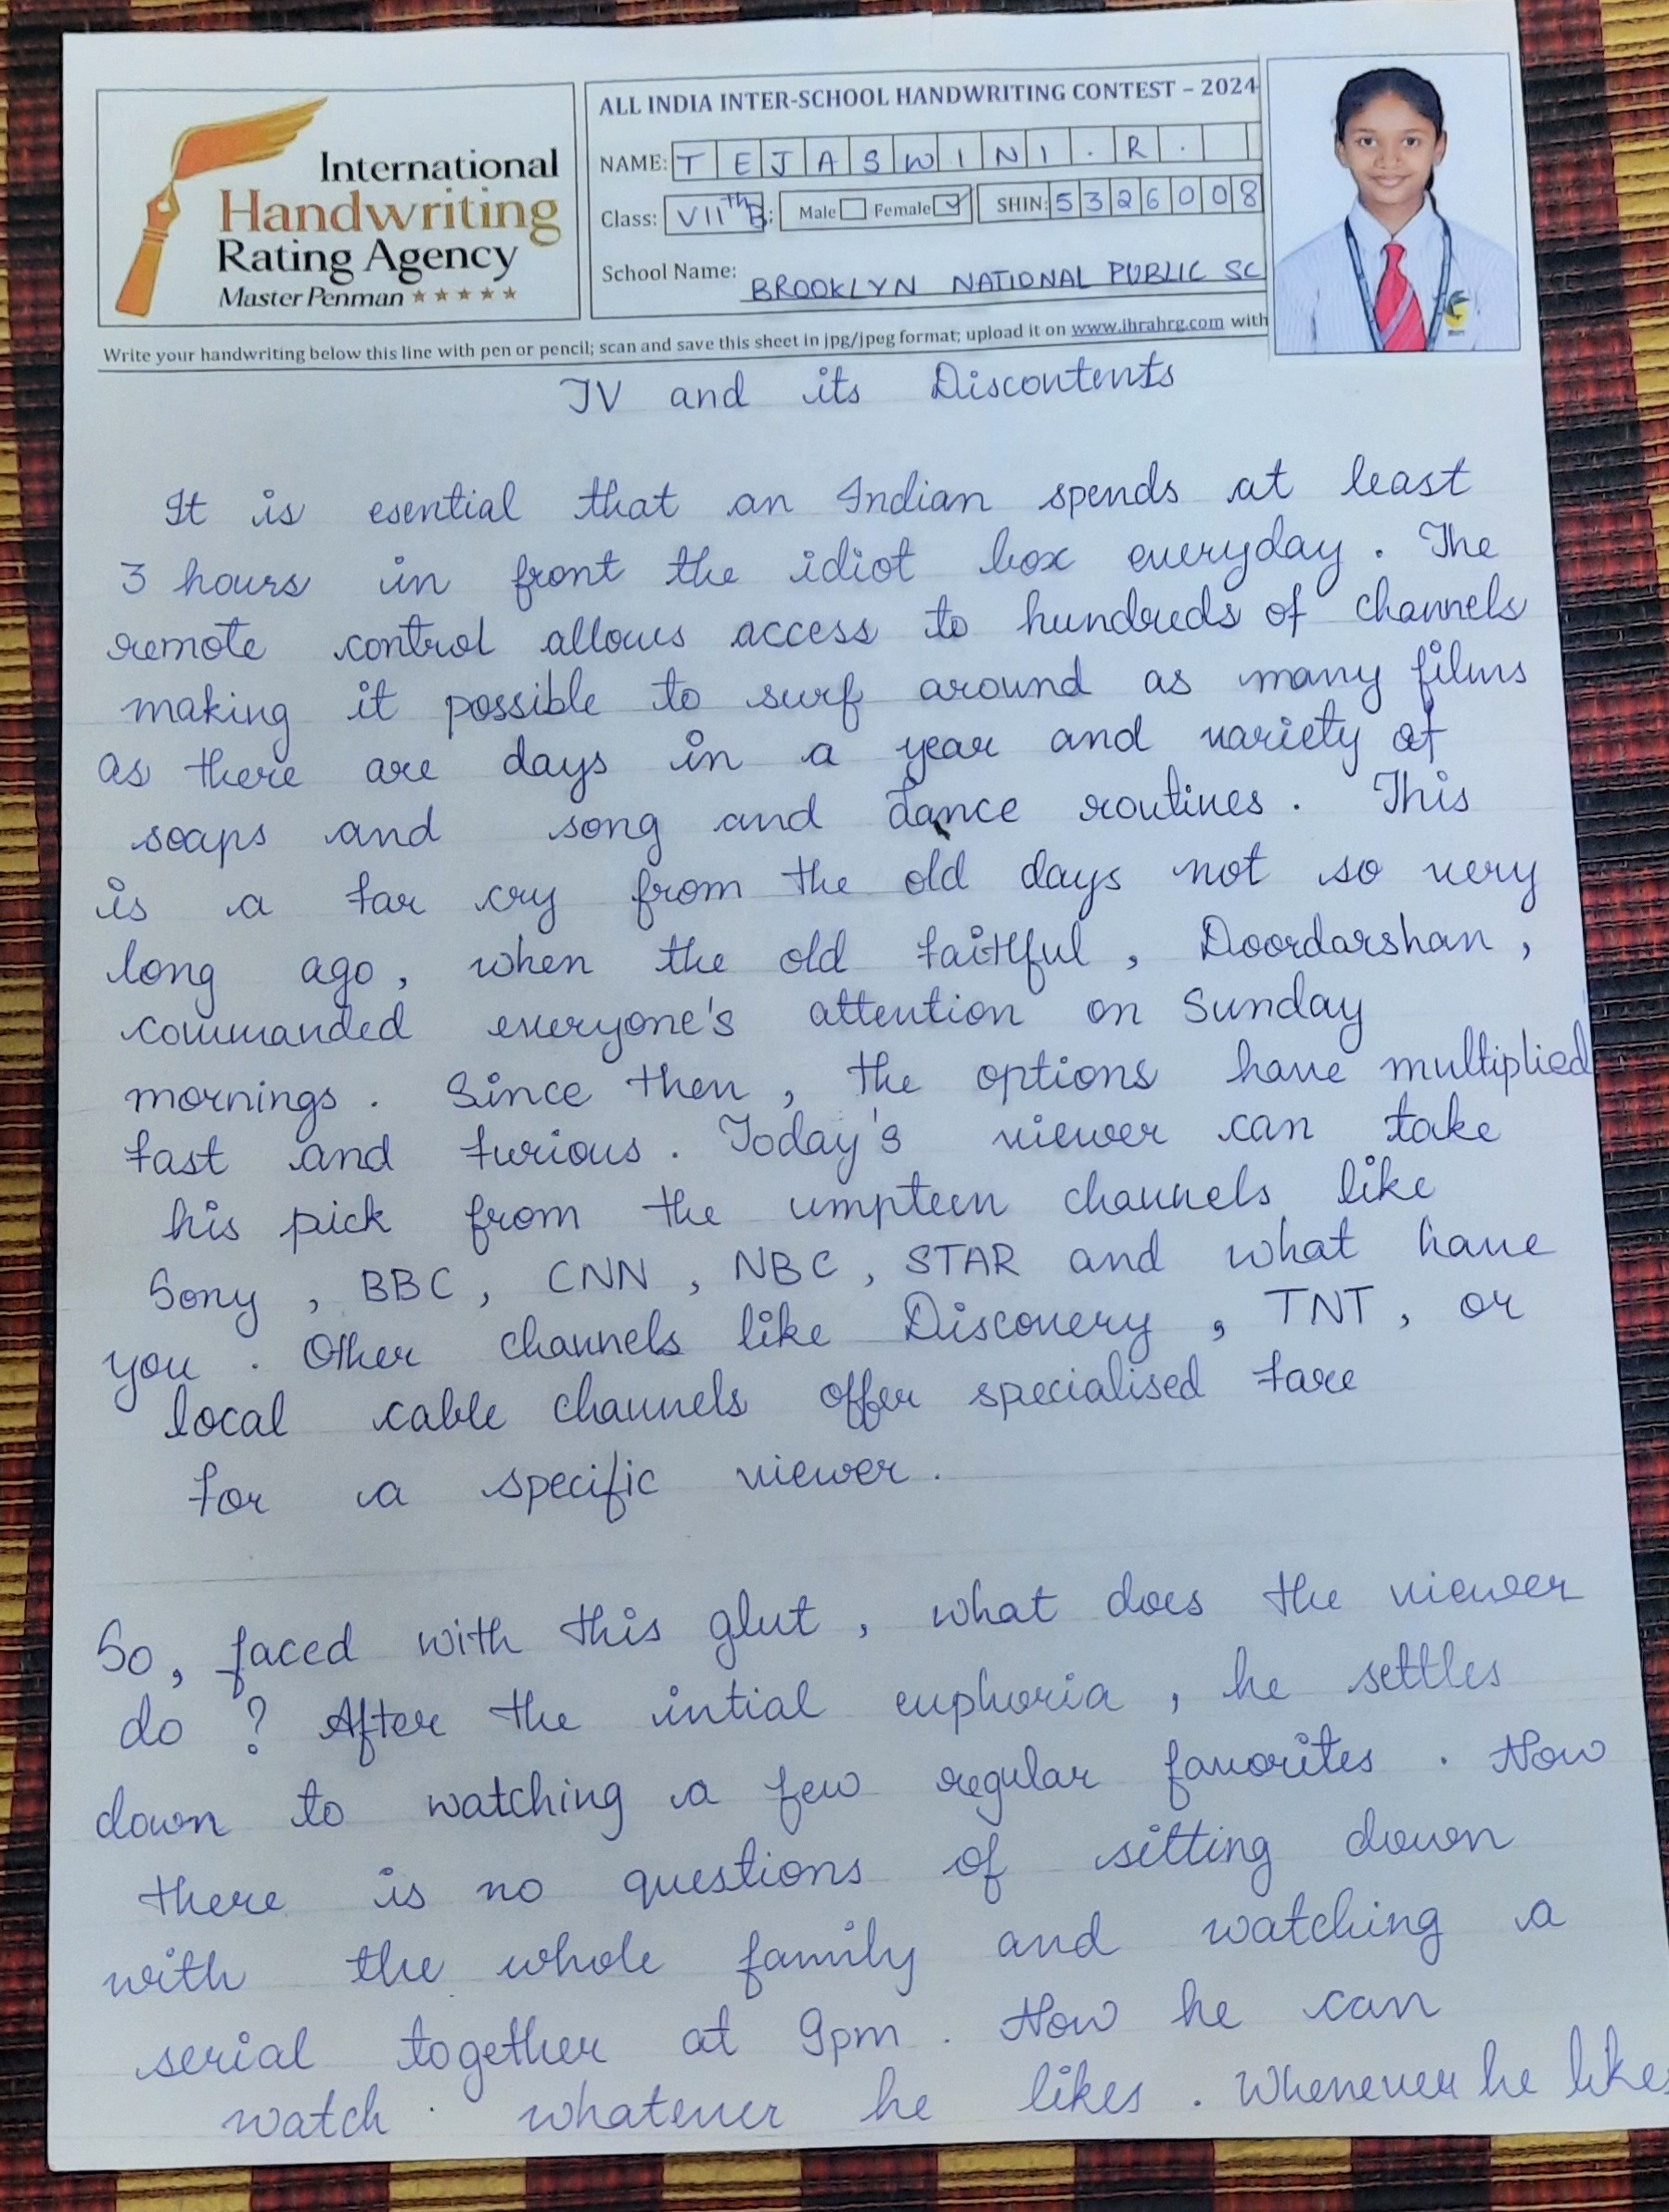 International
Handwriting
Rating Agency
Master Penman
ALL INDIA INTER-SCHOOL HANDWRITING CONTEST – 2024
NAME: TEJASWINI.R.
Class: VIIth B; Male Female ✓ SHIN: 5326008
School Name: BROOKLYN NATIONAL PUBLIC SC
Write your handwriting below this line with pen or pencil; scan and save this sheet in jpg/jpeg format; upload it on www.ihrahrg.com with
TV and its Discontents
It is esential that an Indian spends at least
3 hours in front the idiot box everyday. The
remote control allows access to hundreds of channels
making it possible to surf around as many films
as there are days in a year and variety of
soaps and song and dance routines. This
is a far cry from the old days not so very
long ago, when the old faithful, Doordarshan,
commanded everyone's attention on Sunday
mornings. Since then, the options have multiplied
fast and furious. Today's viewer can take
his pick from the umpteen channels like
Sony, BBC, CNN, NBC, STAR and what have
you. Other channels like Discovery, TNT, or
local cable channels offer specialised fare
for a specific viewer.
So, faced with this glut, what does the viewer
do? After the intial euphoria, he settles
down to watching a few regular favorites. Now
there is no questions of sitting down
with the whole family and watching a
serial together at 9pm. Now he can
watch whatever he likes. Whenever he likes